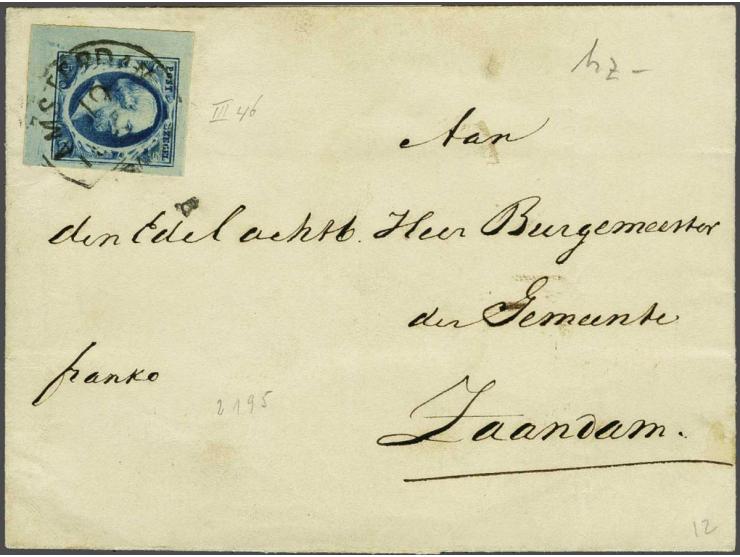 AMSTERDAM
POST ZEGEL
hz -
III 46
Aan
den Edelachtb. Heer Burgemeester
der Gemeente
franko
2195
Zaandam.
12